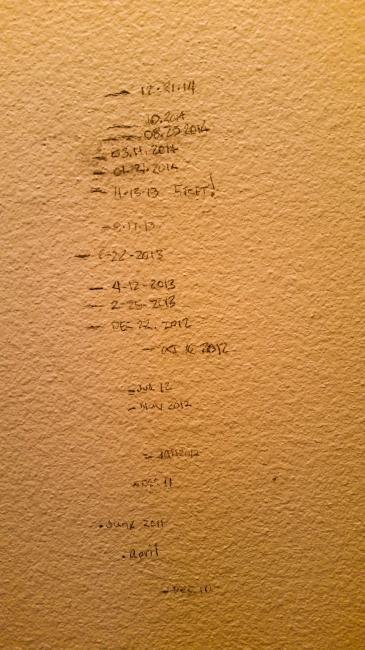 12-21-14
10.2014
08.25 2014
03.11.2014
01.21.2014
11-13-13 5 FEET!
8-17-13
6-22-2013
4-12-2013
2-25-2013
DEC 22, 2012
OCT 10 2012
JUL 12
MAY 2012
JAN 2012
DEC 11
June 2011
April
DEC 10